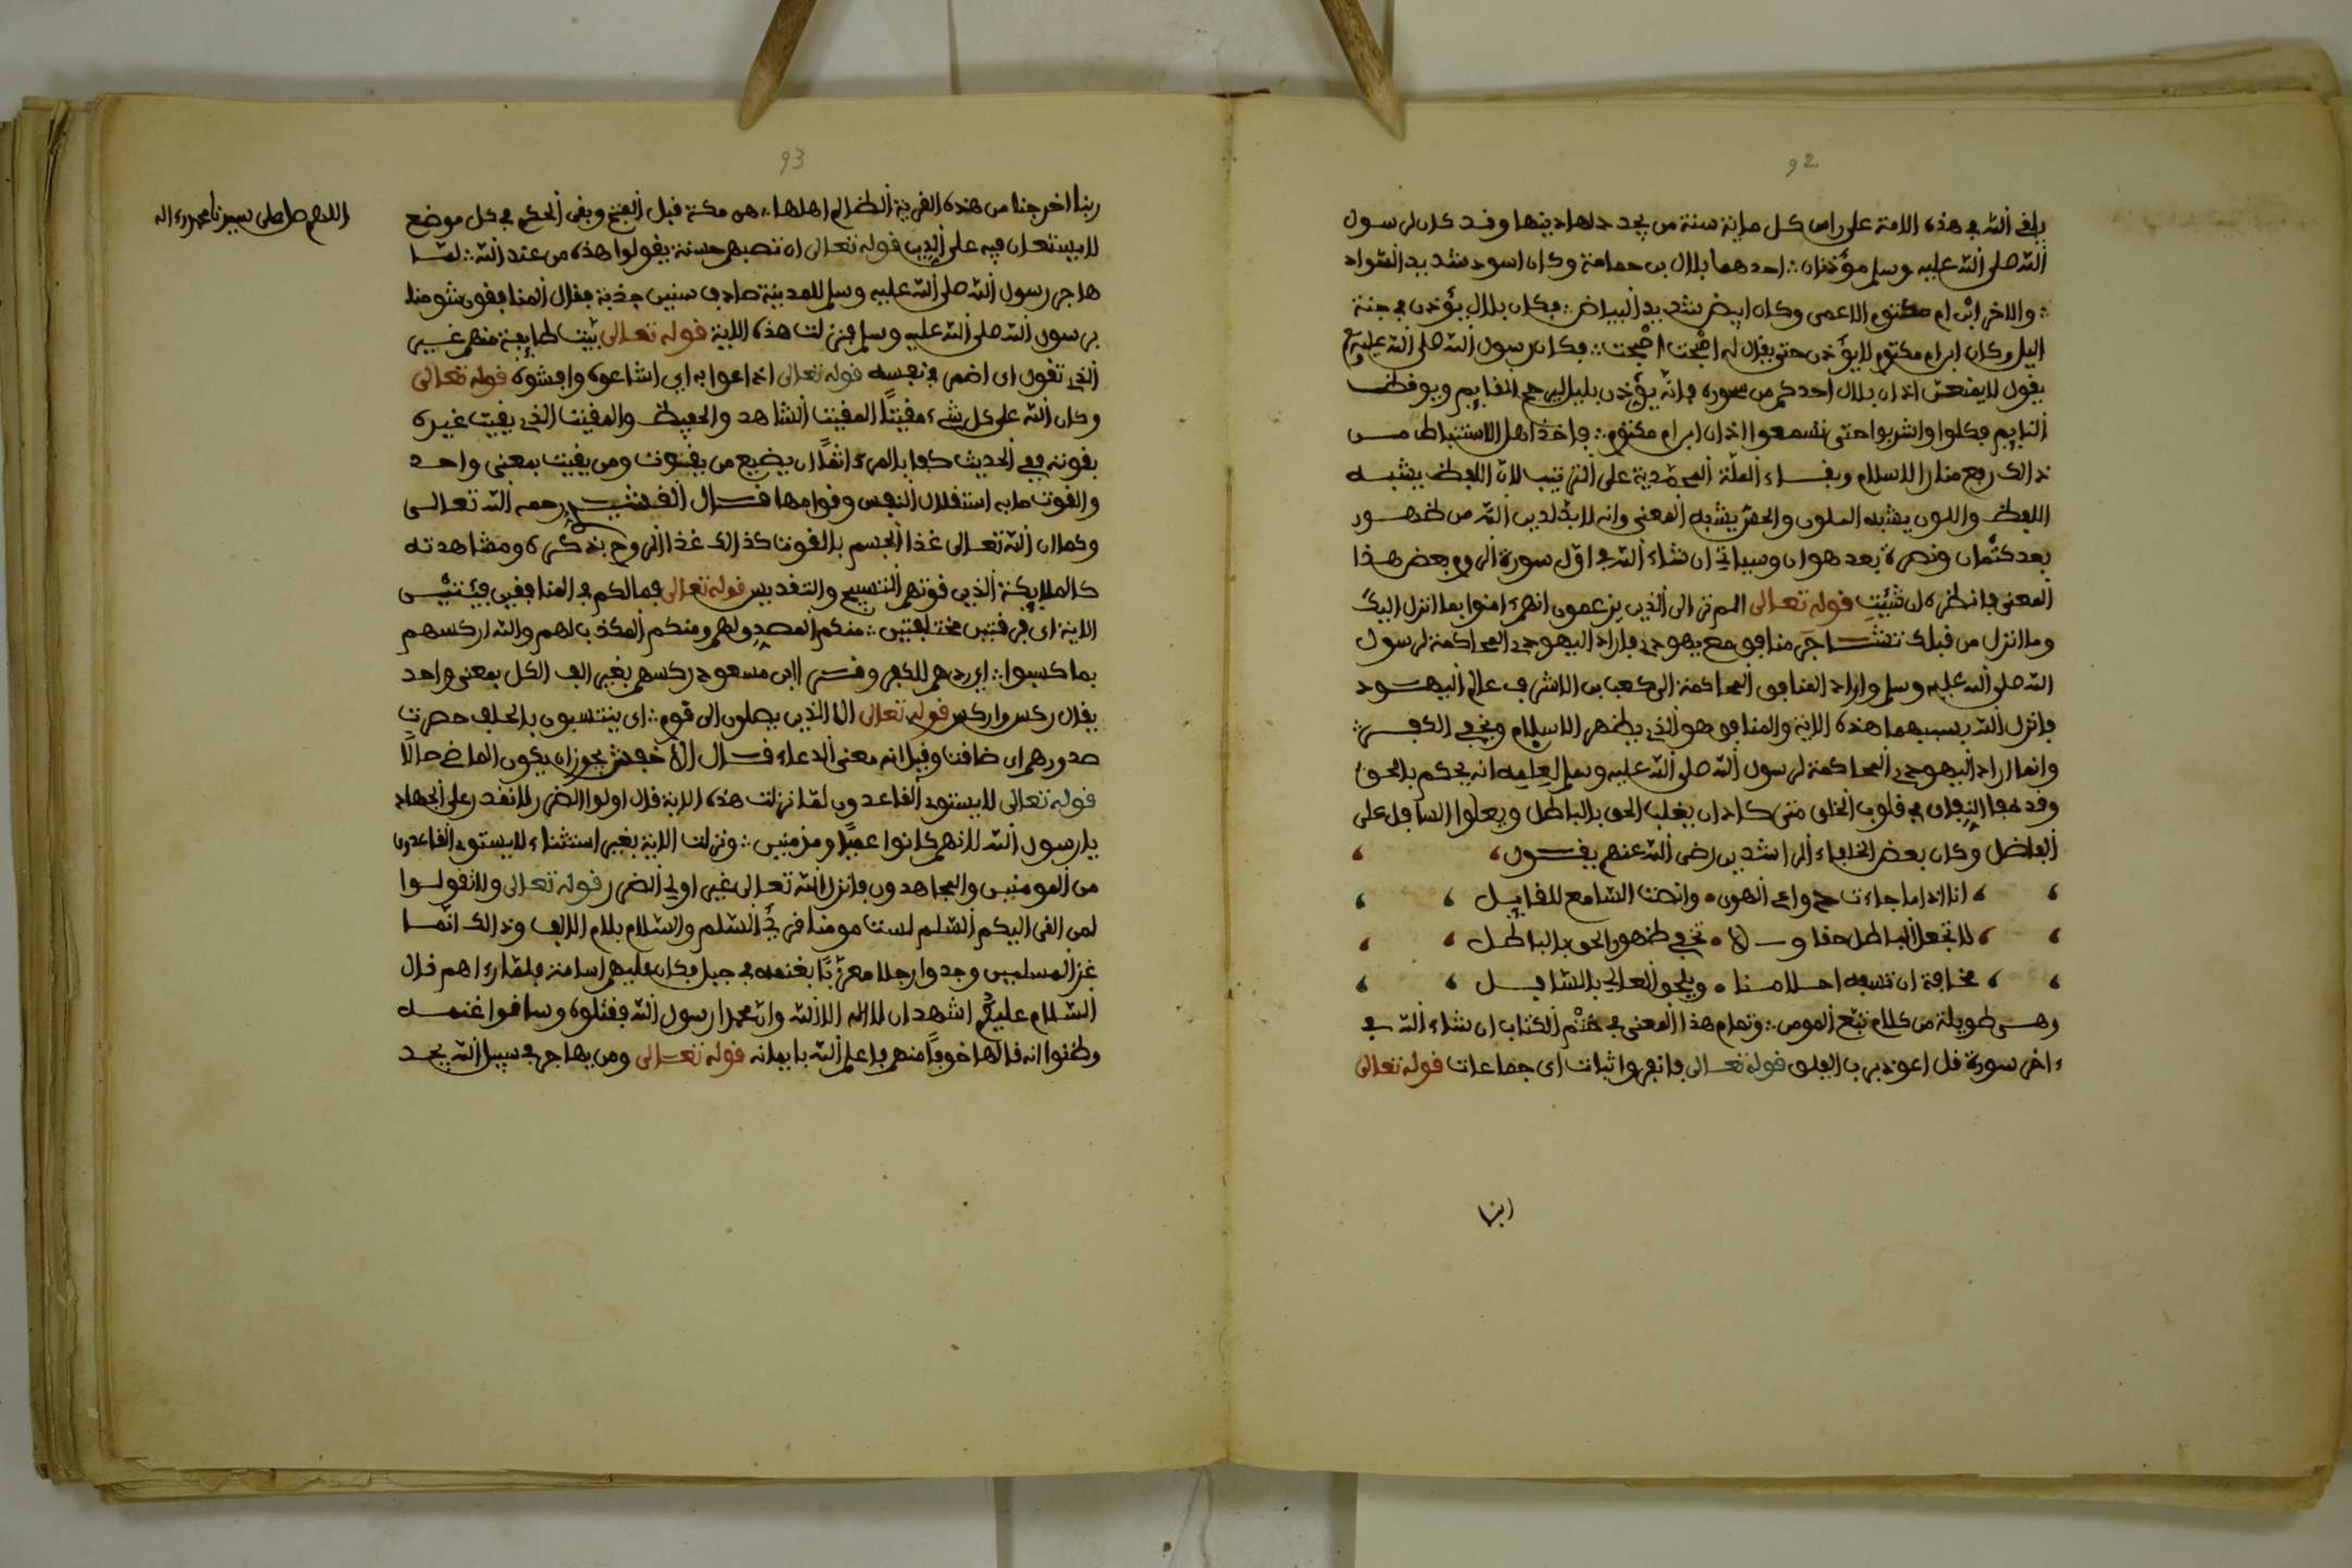 92
يلفى الله في هذه الامة على راس كل ماية سنة من يجدد لها دينها وقد كان لرسول
الله صلى الله عليه وسلم مؤذنان ∴ احدهما بلال بن حمامة وكان اسود شديد السواد
∴ والاخر ابن ام مكتوم الاعمى وكان ابيض شديد البياض ∴ فكان بلال يؤذن في جنة
اليل وكان ابن ام مكتوم لا يؤذن حتى يقال له اصبحت اصبحت ∴ فكان رسول الله صلى الله عليه وسلم
يقول لا يمنعن اذان بلال احدكم من سحوره فانه يؤذن بليل ليرجع القايم ويوقظ
النايم فكلوا واشربوا حتى تسمعوا اذان ابن ام مكتوم ∴ فاخذ اهل الاستنباط مـن
ذالك رفع منار الاسلام وبقـاء الملة المحمدية على الترتيب لان اللفظ يشبه
اللفظ واللون يشبه الملون والحق يشبه المعنى وانه لا بد لدين الله من ظهـور
بعد كتمان ونصرة بعد هوان وسياتي ان شاء الله في اول سورة الروم بعض هـذا
المعنى فانظره ان شئت قوله تعالى الم تر الى الذين يزعمون انهم ءامنوا بما انزل اليك
وما انزل من قبلك تشـاجر منافق مع يهودي فاراد اليهودي المحاكمة لرسول
الله صلى الله عليه وسلم واراد المنافق المحاكمة الى كعب بن الاشرف عالم اليهـود
فانزل الله بسببهما هذه الاية والمنافق هو الذي يظهر الاسلام ويخفي الكفـر ∴
وانما اراد اليهودي المحاكمة لرسول الله صلى الله عليه وسلم لعلمه انه يحكم بالحق
وقد نما النفاق في قلوب الخلق متى كاد ان يغلب الحق بالباطل ويعلوا السافل على
الفاضل وكان بعض الخلفاء الراشدين رضى الله عنهم يقـول
انا اذا ما جاءت دواعى الهوى • وانصت السامع للقايـل
لا تجعل الباطل حقا و لا • تخفي ظهور الحق بالباطـل
مخافة ان تسفه احـلامـنا • ويلحق العالي بالسافـل
وهـى طويلة من كلام تبّع المومن ∴ وتمام هذا المعنى في ختم الكتاب ان شاء الله في
ءاخر سورة قل اعوذ برب الفلق قوله تعـالى فانفروا ثبات اى جماعات قوله تعالى
ربنا
93
ربنا اخرجنا من هذه القرية الظالم اهلها ∴ هى مكة قبل الفتح وبقى الحكم في كل موضع
لا يستعان فيه على الدين قوله تعالى ان تصبهم حسنة يقولوا هذه من عند الله ∴ لمـا
هاجر رسول الله صلى الله عليه وسلم للمدينة صادف سنين جذبة فقال المنافقون شومنا
برسول الله صلى الله عليه وسلم فنزلت هذه الاية قوله تعالى بيت طايفة منهم غـير
الذي تقول اى اضمر في نفسه قوله تعالى اذاعوا به اي اشاعوه وافشوه قوله تعالى
وكان الله على كل شيء مقيتًا المقيت الشاهد والحفيظ والمقيت الذي يقيت غيره
بقوته ففي الحديث كفا بالمرء اثمًا ان يضيع من يقوت ومن يقيت بمعنى واحـد
والقوت ما به استقلال النفس وقوامها قـال القشيـري رحمه الله تعالـى
وكما ان الله تعـالى غذا الجسم بالقوت كذالك غذا الروح بذكره ومشاهدته
كالملايكة الذين قوتهم التسبيح والتقديس قوله تعالى فمالكم في المنافقين فيتيـن
الاية اى فرقتين مختلفتين ∴ منكم المصدق لهم ومنكم المكذب لهم والله اركسهم
بما كسبوا ∴ اي ردهم للكفر وقـرا ابن مسعود ركسهم بغير الف الكل بمعنى واحد
يقال ركس واركس قوله تعالى الا الذين يصلون الى قوم ∴ اى ينتسبون بالحلف حصرت
صدورهم اى ضاقت وقيل انه معنى الدعاء قـال الاخفش يجوز ان يكون الماضي حالًا
قوله تعالى لا يستوي القاعدون لما نزلت هذه الاية قال اولوا الضرر لا نقدر على الجهاد
يا رسول الله لانهم كانوا عميًا ومزمنين ∴ ونزلت الاية بغير استثناء لا يستوي القاعدون
من المومنين والمجاهدون فانزل الله تعـالى غير اولي الضرر قوله تعالى ولا تقولـوا
لمن القى اليكم السلم لست مومنا قرئ السلم والسلام بلام الالف وذالك انمـا
غز المسلمين وجدوا رجلا معزبًا بغنمه في جبل فكان عليهم اسامة فلما رءاهم قال
السلام عليكم اشهد ان لا اله الا الله وان محمدا رسول الله فقتلوه وساقوا غنمـه
وظنوا انه قالها خوفًا منهم فاعلم الله بايمانه قوله تعـالى ومن يهاجر في سبيل الله يجـد
اللهم صل على سيدنا محمد وءاله